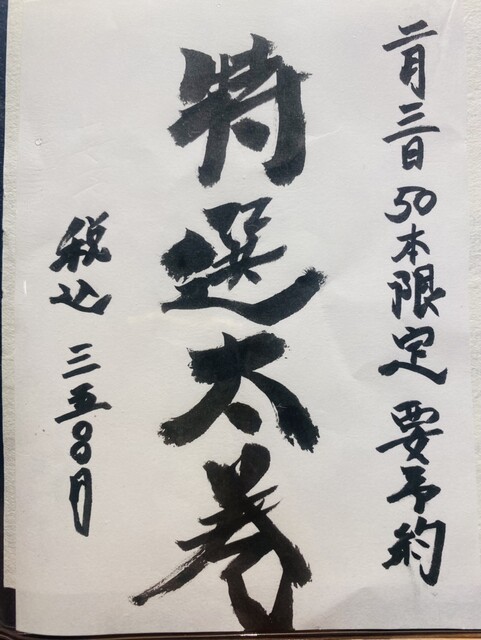 二月三日 50本限定 要予約
特選太巻
税込 三五〇〇円